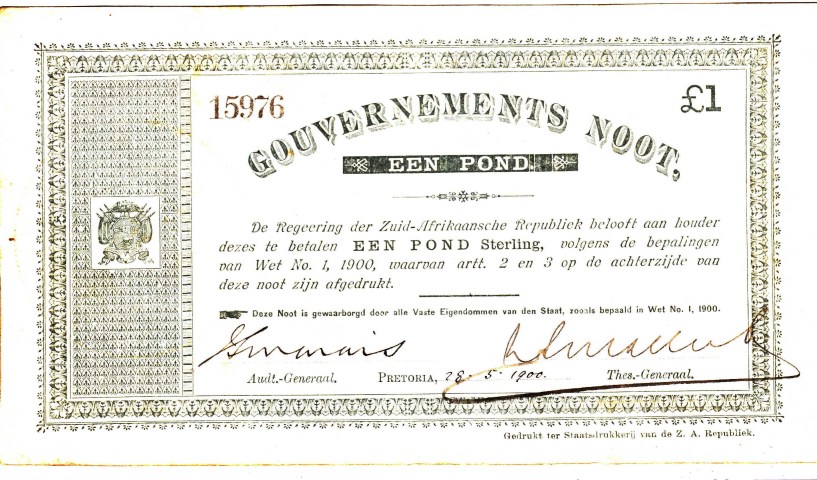 15976
£1
GOUVERNEMENTS NOOT,
EEN POND.
De Regeering der Zuid-Afrikaansche Republiek belooft aan houder
dezes te betalen EEN POND Sterling, volgens de bepalingen
van Wet No. 1, 1900, waarvan artt. 2 en 3 op de achterzijde van
deze noot zijn afgedrukt.
Deze Noot is gewaarborgd door alle Vaste Eigendommen van den Staat, zooals bepaald in Wet No. 1, 1900.
Audt.-Generaal. PRETORIA, 28-5-1900. Thes.-Generaal.
Gedrukt ter Staatsdrukkerij van de Z. A. Republiek.